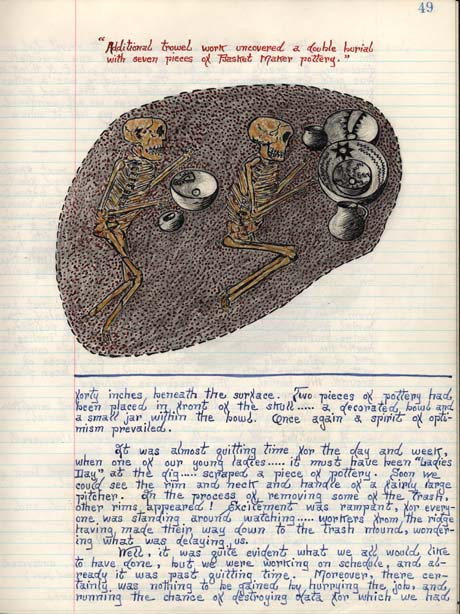 49
"Additional trowel work uncovered a double burial
with seven pieces of Basket Maker pottery."
forty inches beneath the surface. Two pieces of pottery had
been placed in front of the skull..... a decorated bowl and
a small jar within the bowl. Once again a spirit of opti-
mism prevailed.
It was almost quitting time for the day and week,
when one of our young ladies..... it must have been "Ladies
Day" at the dig.... scraped a piece of pottery. Soon we
could see the rim and neck and handle of a fairly large
pitcher. In the process of removing some of the trash,
other rims appeared! Excitement was rampant, for every-
one was standing around watching..... workers from the ridge
having made their way down to the trash mound, wonder-
ing what was delaying us.
Well, it was quite evident what we all would like
to have done, but we were working on schedule, and al-
ready it was past quitting time. Moreover, there cer-
tainly was nothing to be gained by hurrying the job, and
running the chance of destroying data for which we had